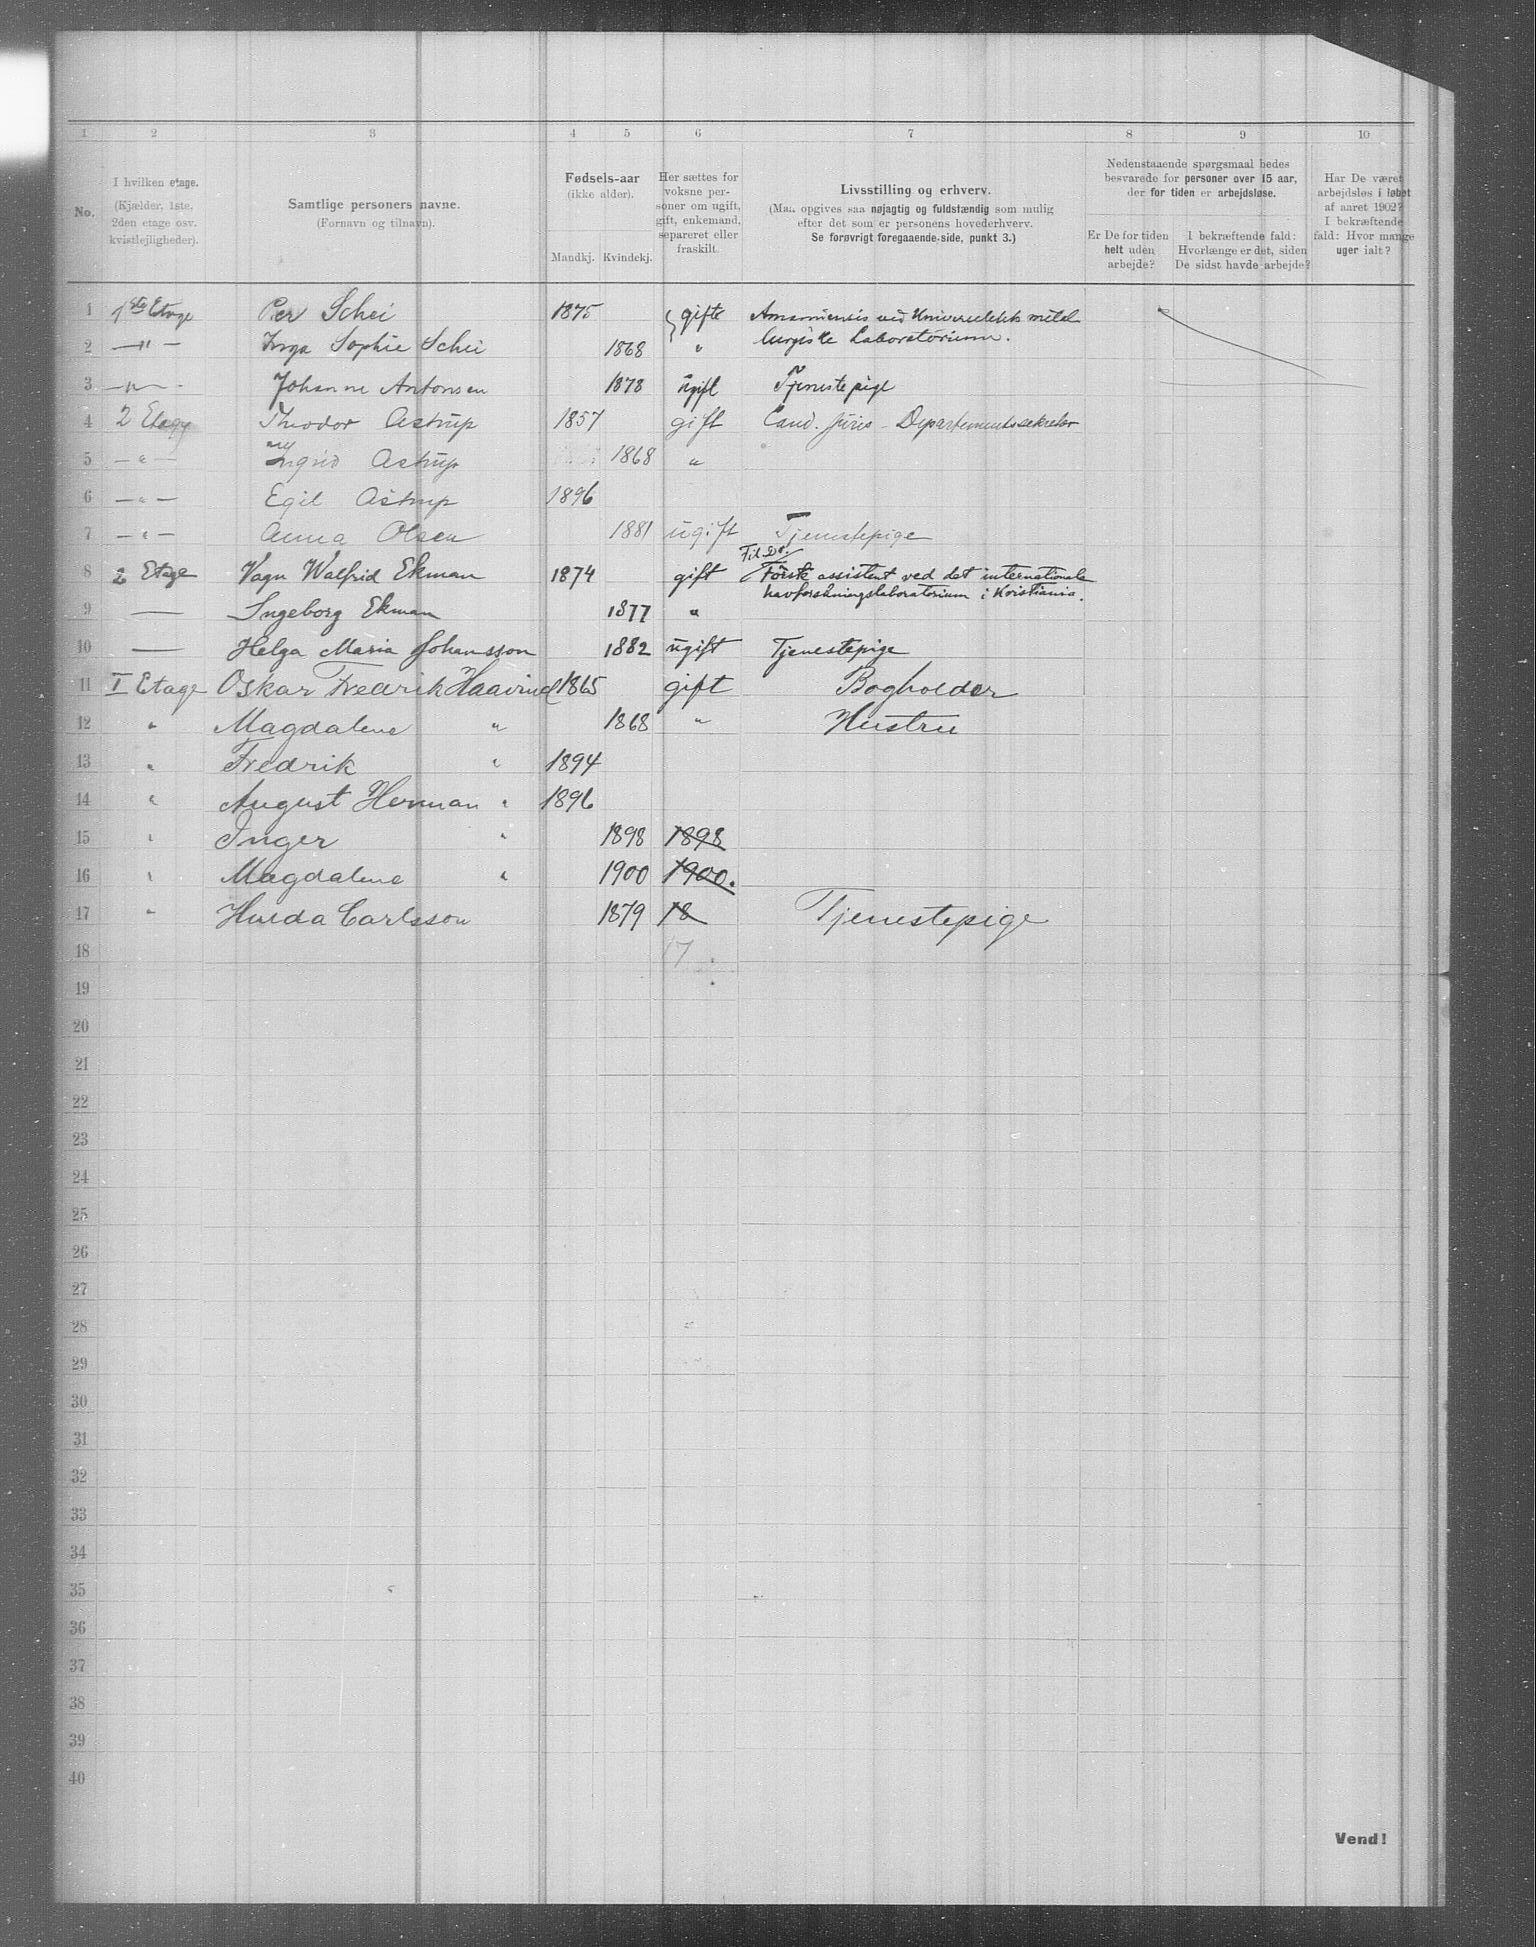 1 2 3 4 5 6 7 8 9 10
No.
I hvilken etage.
(Kjælder, 1ste,
2den etage osv.
kvistlejligheder).
Samtlige personers navne.
(Fornavn og tilnavn).
Fødsels-aar
(ikke alder).
Mandkj. Kvindekj.
Her sættes for
voksne per-
soner om ugift,
gift, enkemand,
separeret eller
fraskilt.
Livsstilling og erhverv.
(Man opgives saa nøjagtig og fuldstændig som mulig
efter det som er personens hovederhverv.
Se forøvrigt foregaaende side, punkt 3.)
Nedenstaaende spørgsmaal bedes
besvarede for personer over 15 aar,
der for tiden er arbejdsløse.
Er De for tiden
helt uden
arbejde?
I bekræftende fald:
Hvorlænge er det, siden
De sidst havde arbejde?
Har De været
arbejdsløs i løbet
af aaret 1902?
I bekræftende
fald: Hvor mange
uger ialt?
1 1ste Etage Per Schei 1875 gifte Amanuensis ved Universitetets metal
2 — " — Inga Sophie Schei 1868 " lurgiske Laboratorium.
3 — " — Johanne Antonsen 1878 ugift Tjenestepige
4 2 Etage Theodor Astrup 1857 gift Cand. juris - Departementssekretær
5 — " — Ingrid Astrup 1868 "
6 — " — Egil Astrup 1896
7 — " — Anna Olsen 1881 ugift Tjenestepige
Fil. Dr.
8 2 Etage Vagn Walfrid Ekman 1874 gift Första assistent ved det internationale
havforskningslaboratorium i Kristiania.
9 — Ingeborg Ekman 1877 "
10 — Helga Maria Johansson 1882 ugift Tjenestepige
11 I Etage Oskar Fredrik Haavind 1865 gift Bogholder
12 " Magdalene " 1868 " Hustru
13 " Fredrik " 1894
14 " August Herman " 1896
15 " Inger " 1898 1898
16 " Magdalene " 1900 1900.
17 " Hulda Carlsson 1879 18 Tjenestepige
18 17
19
20
21
22
23
24
25
26
27
28
29
30
31
32
33
34
35
36
37
38
39
40
Vend!